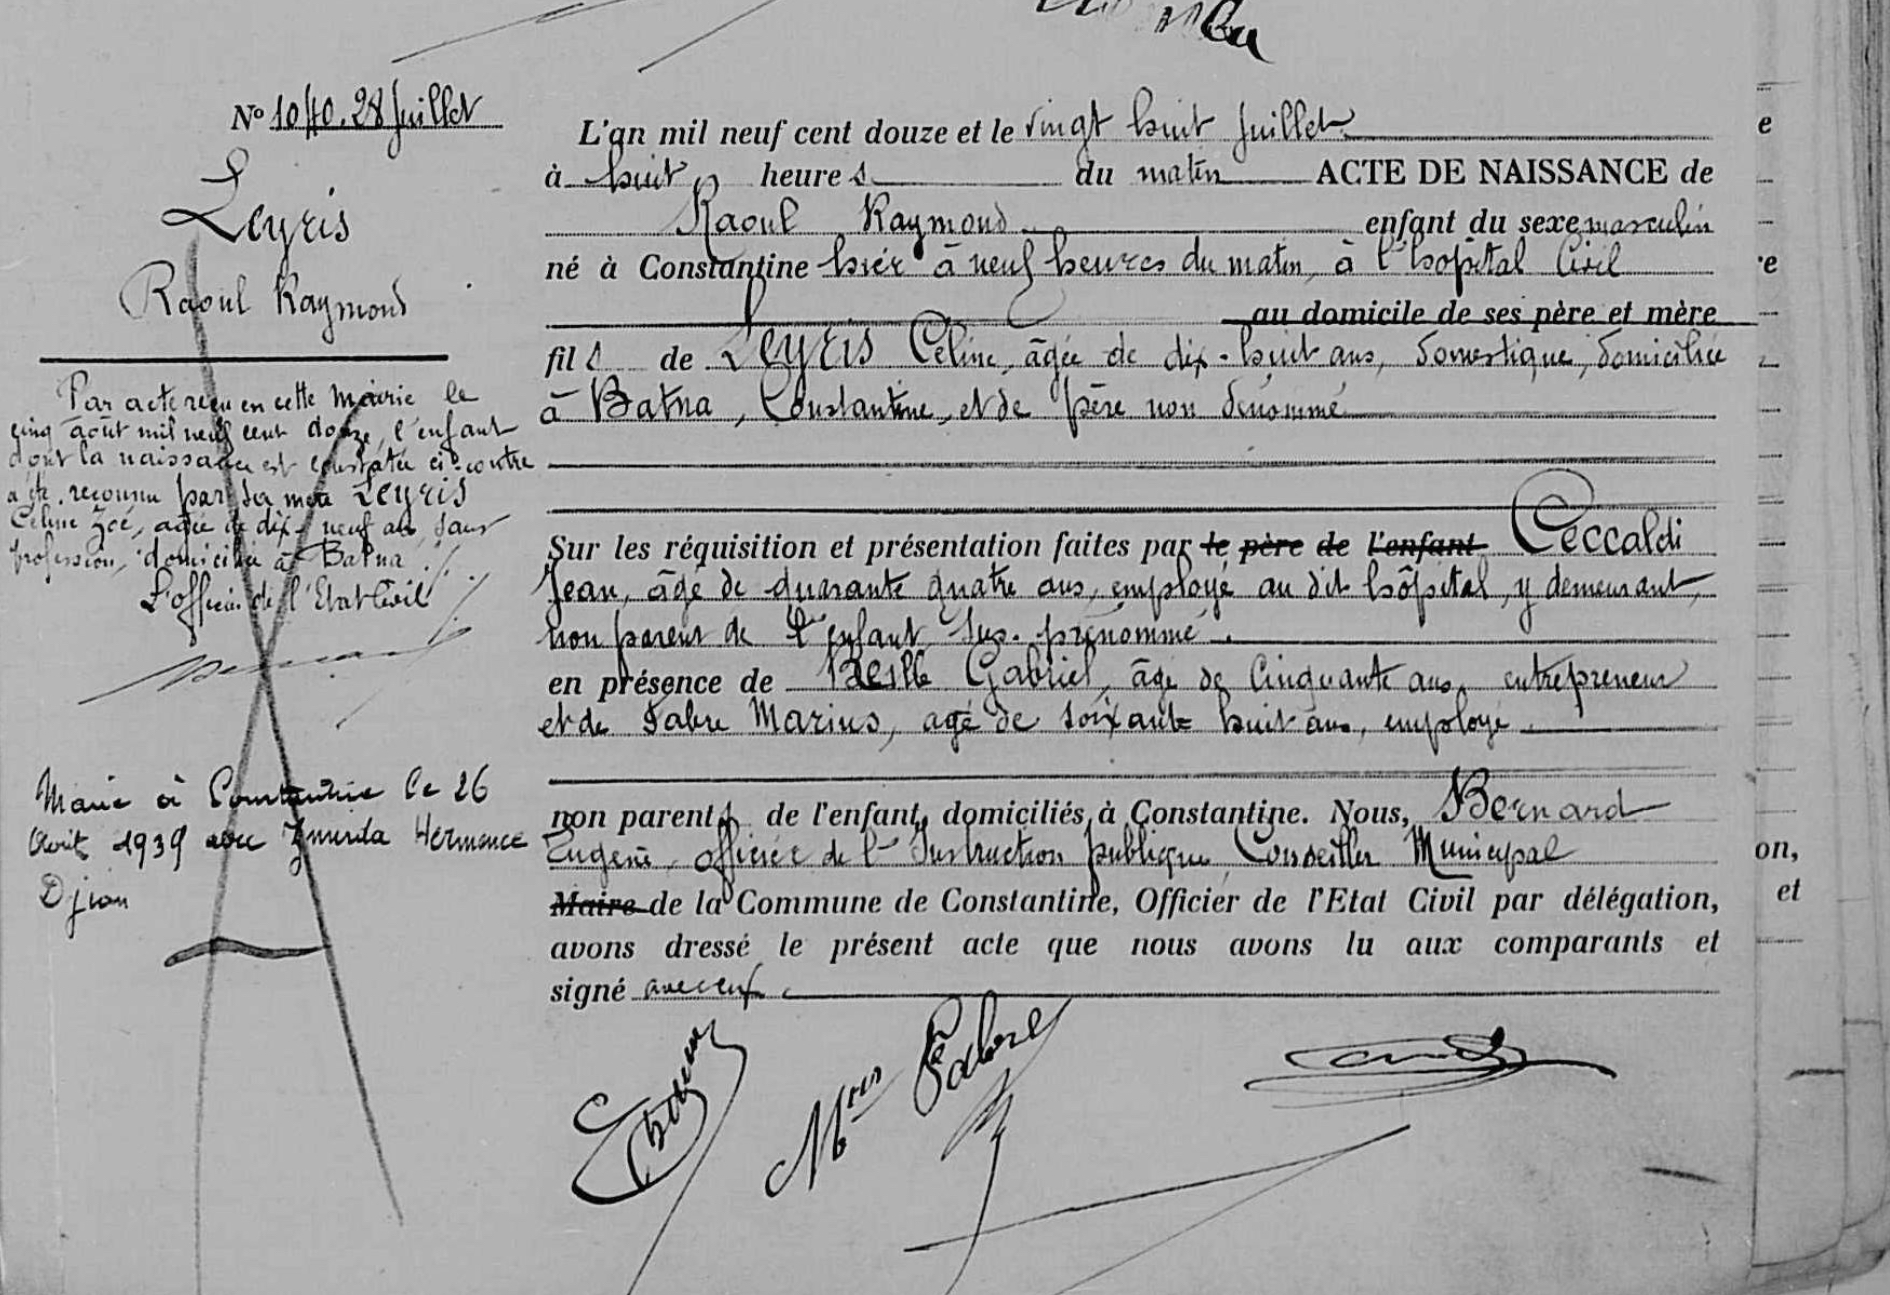 N° 1040. 28 Juillet
Leyris
Raoul Raymond
Par acte reçu en cette mairie le
cinq août mil neuf cent douze, l'enfant
dont la naissance est constatée ci-contre
a été reconnu par sa mère Leyris
Céline Zoé, âgée de dix-neuf ans, sans
profession, domiciliée à Batna.
L'officier de l'Etat Civil
Marié à Constantine le 26
Août 1939 avec Hermance
L'an mil neuf cent douze et le vingt huit Juillet
à huit heures du matin ACTE DE NAISSANCE de
Raoul Raymond enfant du sexe masculin
né à Constantine hier à neuf heures du matin, à l'hôpital Civil
au domicile de ses père et mère
fils de Leyris Céline, âgée de dix-huit ans, domestique, domiciliée
à Batna, Constantine, et de père non dénommé
Sur les réquisition et présentation faites par le père de l'enfant Ceccaldi
Jean, âgé de quarante quatre ans, employé au dit hôpital, y demeurant,
non parent de l'enfant sus-prénommé.
en présence de Gabriel, âgé de Cinquante ans, entrepreneur
et de Fabre Marius, âgé de soixante huit ans, employé
non parents de l'enfant, domiciliés à Constantine. Nous, Bernard
Eugène, officier de l'Instruction publique, Conseiller Municipal
Maire de la Commune de Constantine, Officier de l'Etat Civil par délégation,
avons dressé le présent acte que nous avons lu aux comparants et
signé avec eux.
Mius Fabre
e
re
on,
et